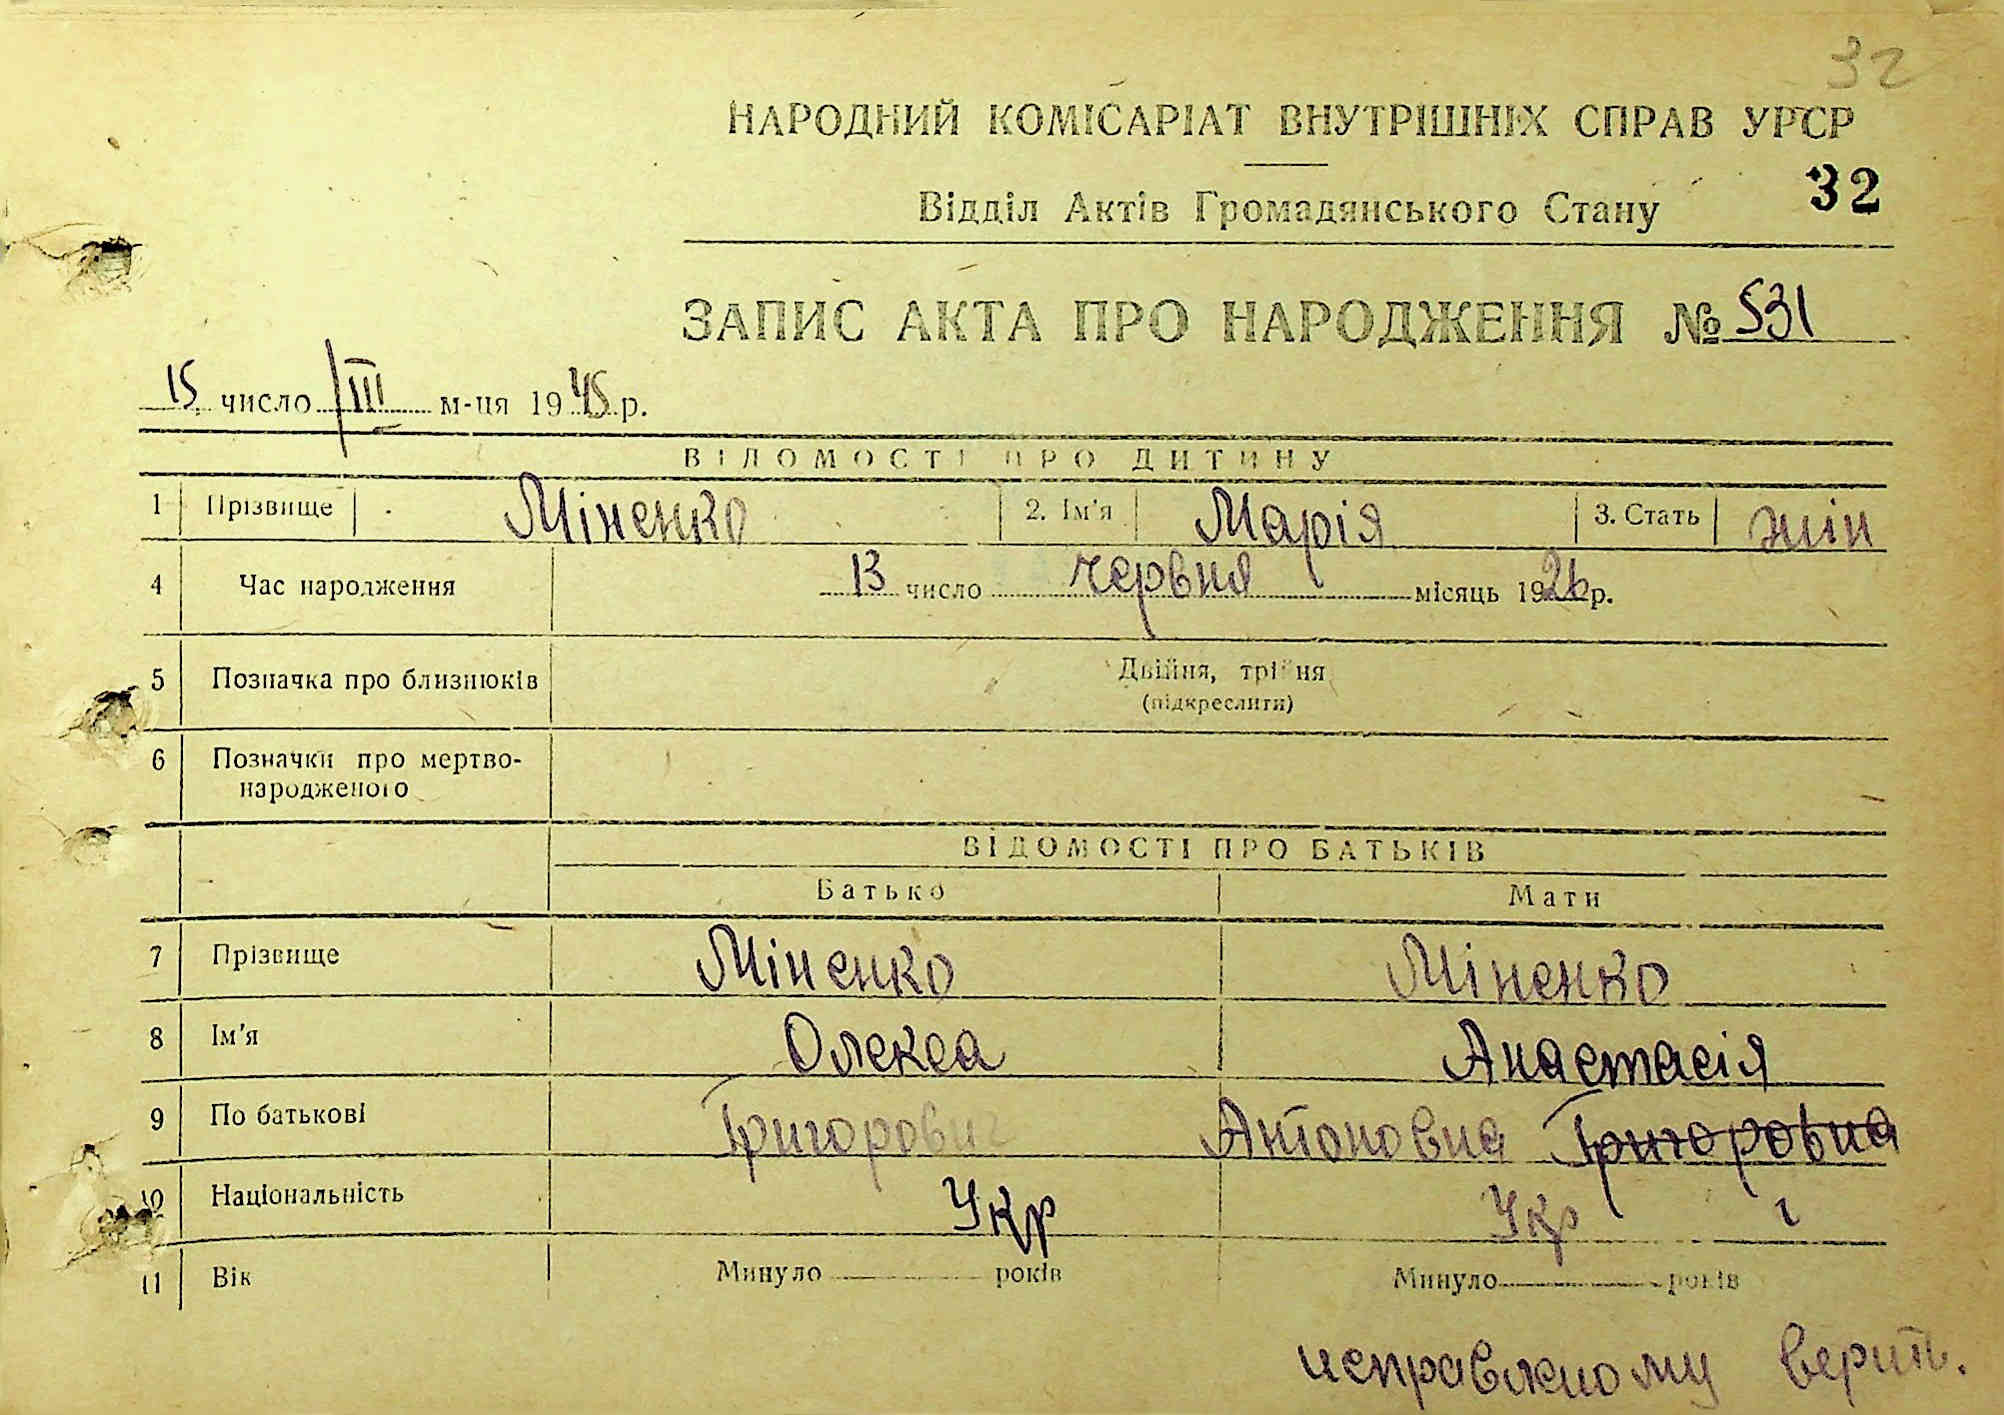 32
НАРОДНИЙ КОМІСАРІАТ ВНУТРІШНІХ СПРАВ УРСР
Відділ Актів Громадянського Стану 32
ЗАПИС АКТА ПРО НАРОДЖЕННЯ № 531
15 число III м-ця 1945 р.
ВІДОМОСТІ ПРО ДИТИНУ
1 Прізвище Міненко 2. Ім'я Марія 3. Стать жін
4 Час народження 13 число червня місяць 1926 р.
5 Позначка про близнюків Двійня, трійня
(підкреслити)
6 Позначки про мертво-
народженого
ВІДОМОСТІ ПРО БАТЬКІВ
Батько Мати
7 Прізвище Міненко Міненко
8 Ім'я Олекса Анастасія
9 По батькові Григорович Антоновна Григоровна
10 Національність Укр Укр
11 Вік Минуло років Минуло років
исправленому верить.